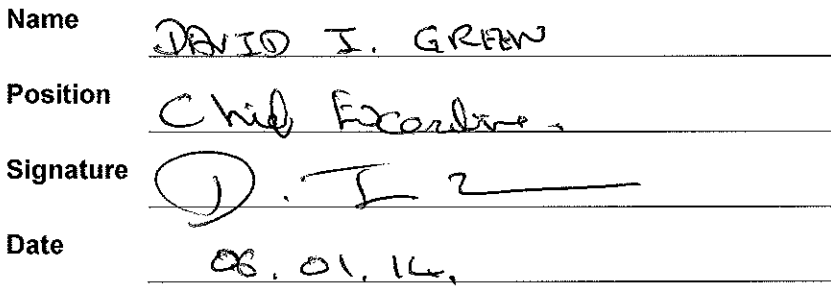 Name DAVID I. GREEN
Position Chief Executive.
Signature D. I
Date 06.01.14.